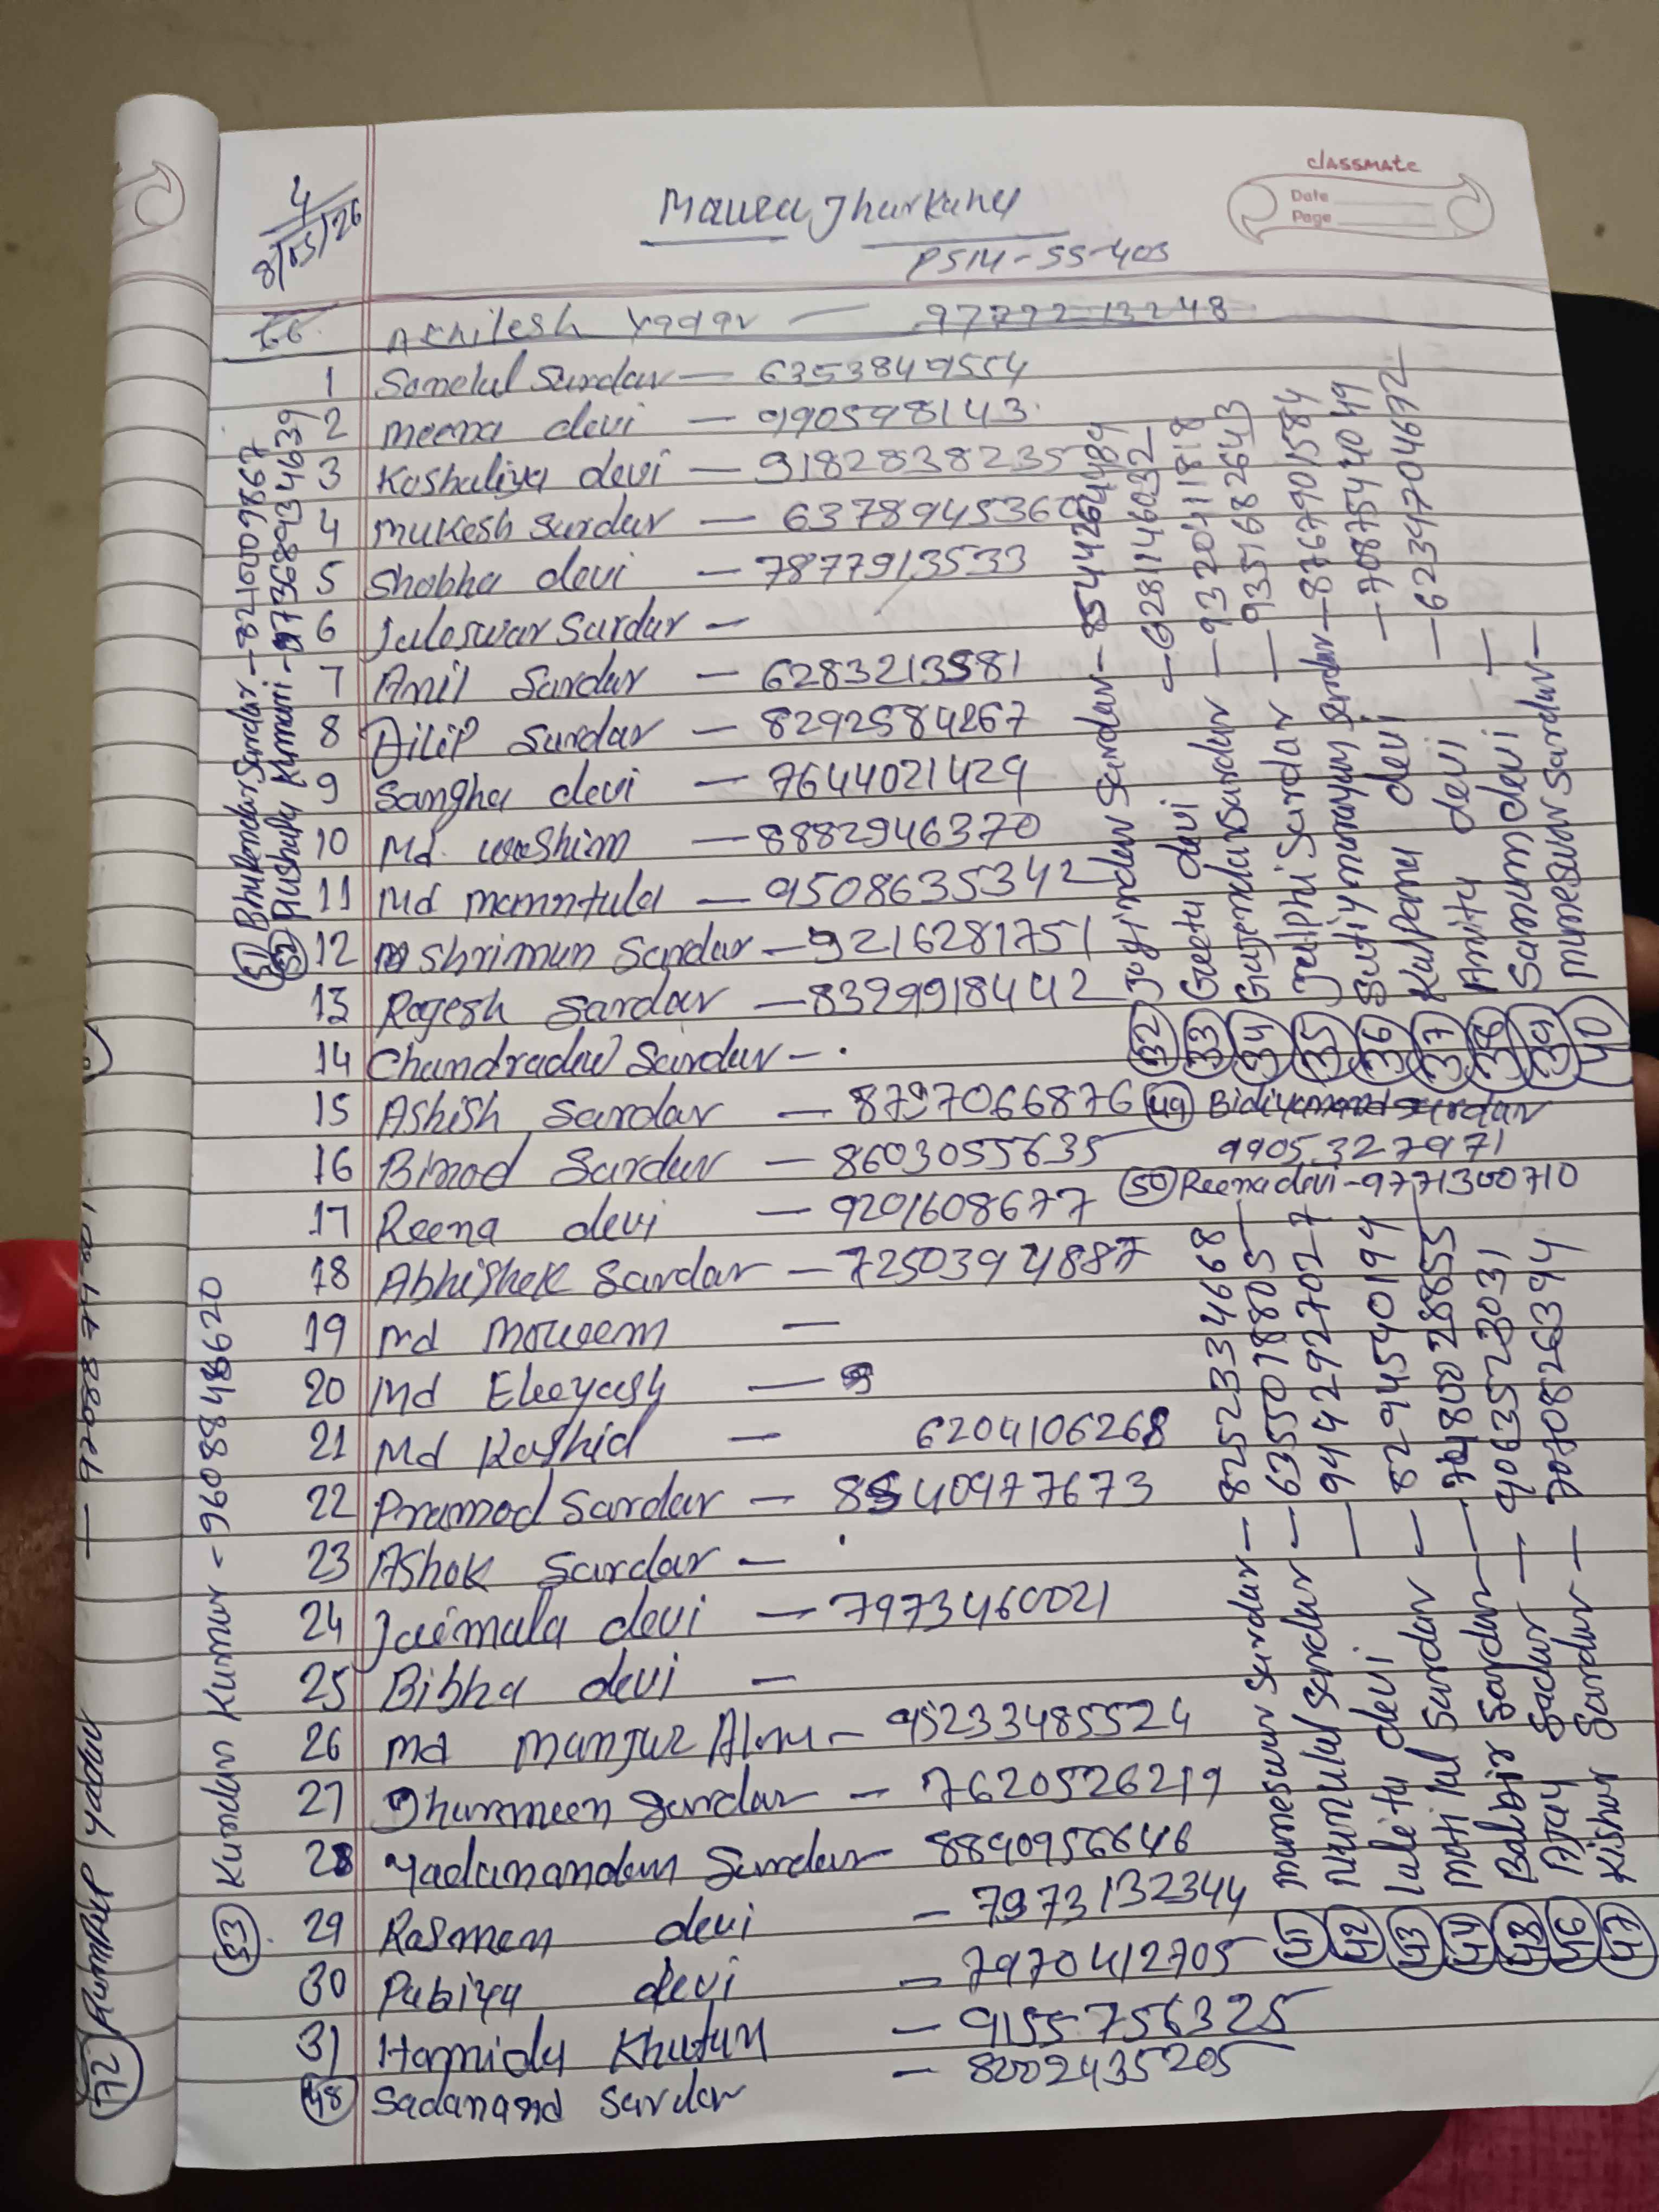 classmate
Date
Page
4
8/05/26
Maura Jharkand
PS14-SS-403
Akhilesh Yadav — 9779213248
1 Sonelal Sardar — 6353849554
2 meena devi — 990598143
3 Koshaliya devi — 9182838235
4 mukesh Sardar — 6378945360
5 Shobha devi — 7877913533
6 Jaleswar Sardar —
7 Anil Sardar — 6283213581
8 Dilip Sardar — 8292584267
9 Sangha devi — 7644021429
10 Md. washim — 8882946370
11 Md mamntula — 9508635342
12 Shrimun Sardar — 9216281751
13 Rajesh Sardar — 8329918442
14 Chandradev Sardar —
15 Ashish Sardar — 8797066876
16 Binod Sardar — 8603055635
17 Reena devi — 9201608677
18 Abhishek Sardar — 7250394887
19 md moueem —
20 Md Eleeyash — 9
21 Md Rashid — 6204106268
22 Pramod Sardar — 8540977673
23 Ashok Sardar —
24 Jaimala devi — 7973460021
25 Bibha devi —
26 md manjur Alam — 95233485524
27 Dharmeen Sardar — 7620526219
28 Yadunandan Sardar 8890956646
29 Rasmen devi — 7973132344
30 Pabiya devi — 7970412705
31 Hamida Khatun — 9155756325
48 Sadanand Sardar — 8002435205
32 Jogindar Sardar — 8544264489
33 Geeta devi — 6281146032
34 Gajendar Sardar — 9320411818
35 Julphi Sardar — 9351682643
36 Satiynarayan Sardar — 8767901584
37 Kalpana devi — 7087544049
38 Anita devi — 62349704672
39 Sanum devi —
40 muneswar Sardar —
49 Bidiyanand Sardar
9905327971
50 Reena devi - 9771300710
41 muneswar Sardar — 8252334668
42 nirmulal Sardar — 6355018805
43 laleita devi — 9442927027
44 moti lal Sardar — 8294540194
45 Balbir Sardar — 70480028855
46 Ajay Sadar — 9063523031
47 Kishur Sardar — 7070826394
51 Bhupendar Sardar — 8210009867
52 Pushpa Kumari - 977368934639
53 Kundan Kumar - 9608848620
72 Rampup Yadav